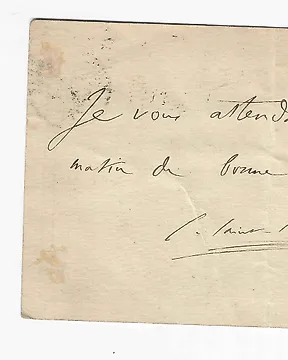 Je vous attends
matin de bonne
C. Saint-